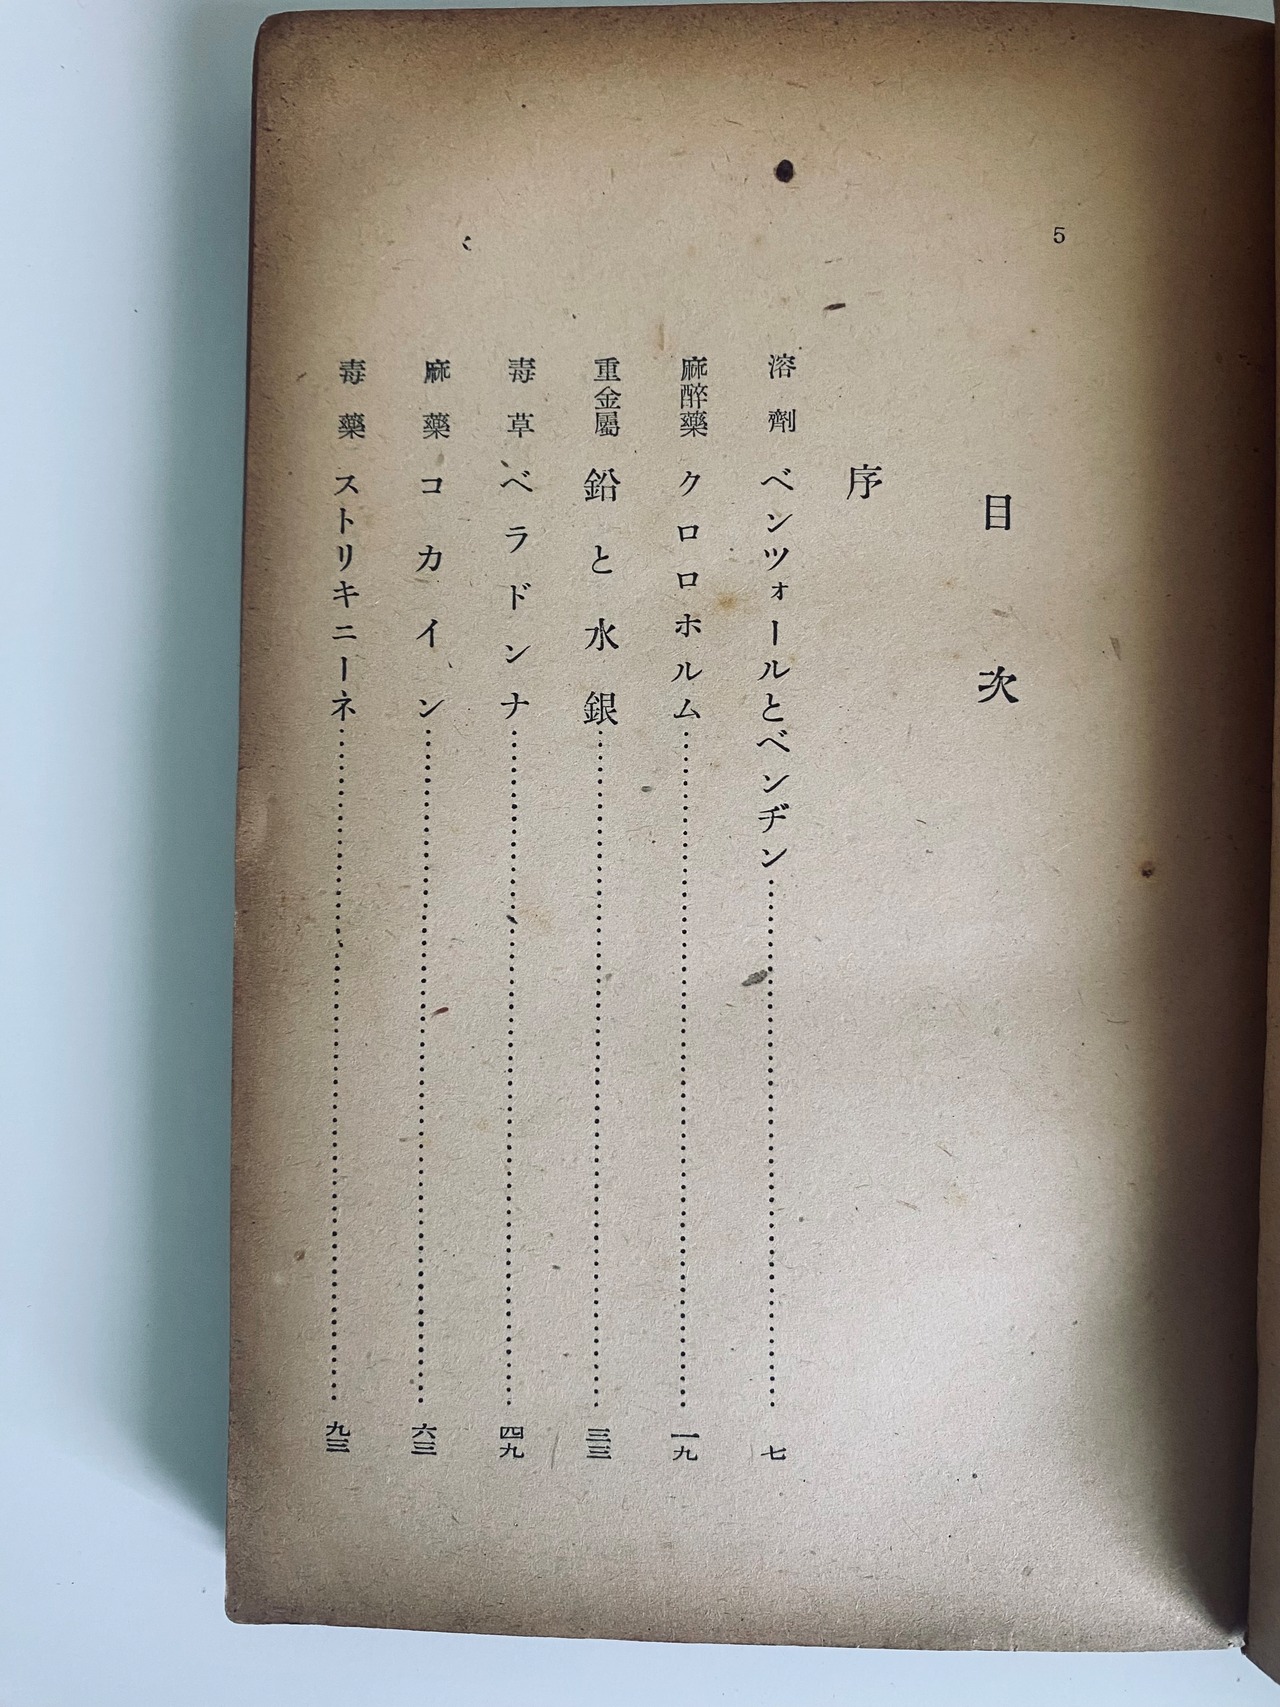 5
目次
序
溶劑 ベンツォールとベンヂン……七
麻醉藥 クロロホルム……一九
重金屬 鉛と水銀……三三
毒草 ベラドンナ……四九
麻藥 コカイン……六三
毒藥 ストリキニーネ……九三